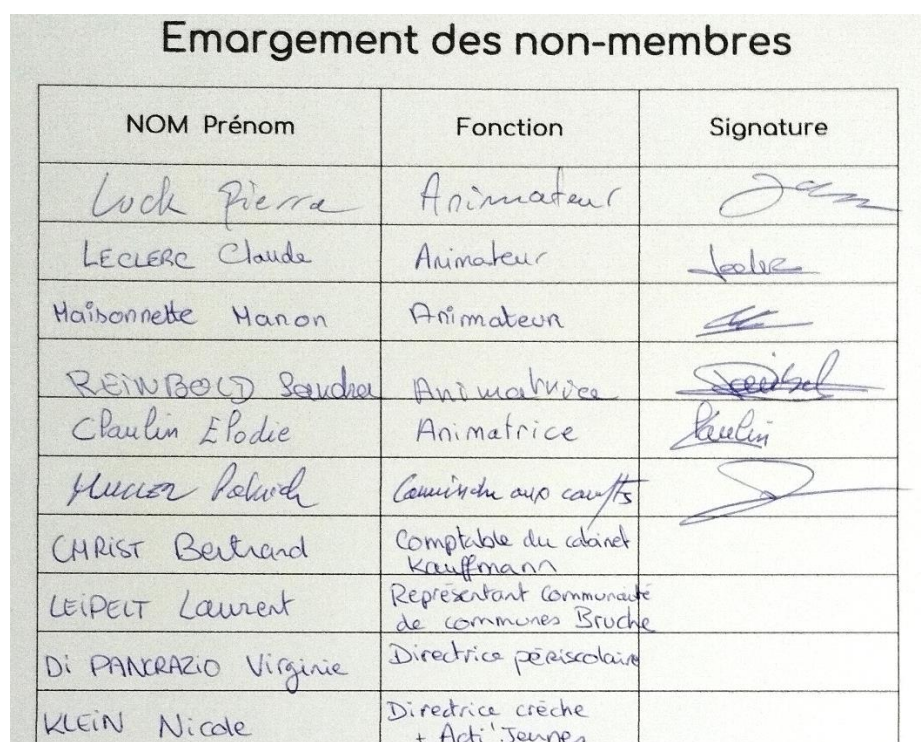 Emargement des non-membres
NOM Prénom Fonction Signature
Luck Pierre Animateur
LECLERC Claude Animateur
Maisonnette Manon Animateur
REINBOLD Sandra Animatrice
Claulin Elodie Animatrice
MULLER Patrick aux
CHRIST Bertrand Comptable du cabinet
Kauffmann
LEIPELT Laurent Représentant Communauté
de communes Bruche
Di PANCRAZIO Virginie Directrice périscolaire
KLEIN Nicole Directrice crèche
+ Acti'Jeunes